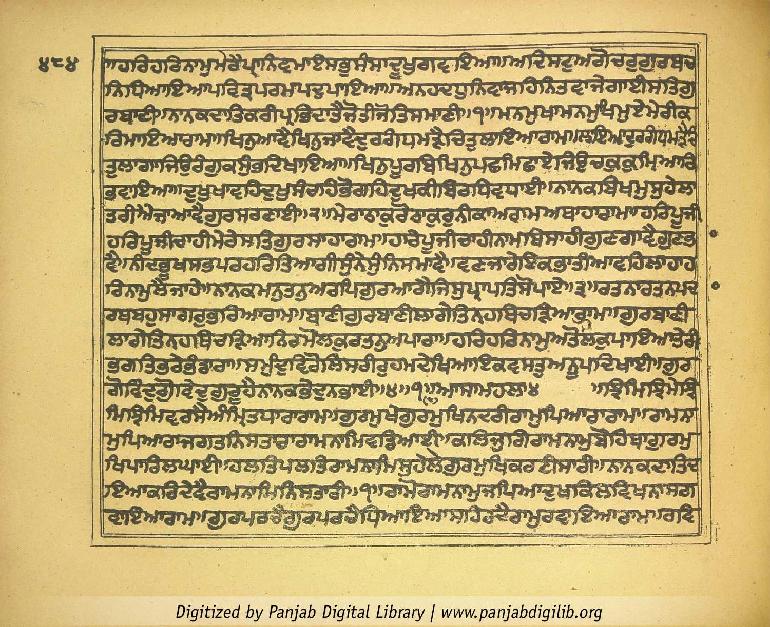 ੪੮੪
॥ਹਰਿਹਰਿਨਾਮੁਮੇਰੈਪ੍ਰਾਨਿਵਸਾਏਸਭੁਸੰਸਾਦੂਖੁਗਵਾਇਆ॥ਅਦਿਸਟੁਅਗੋਚਰੁਗੁਰਬਚ
ਨਿਧਿਆਇਆਪਵਿਤ੍ਰਪਰਮਪਦੁਪਾਇਆ॥ਅਨਹਦਧੁਨਿਵਾਜਹਿਨਿਤਵਾਜੇਗਾਈਸਤਿਗੁ
ਰਬਾਣੀ॥ਨਾਨਕਦਾਤਿਕਰੀਪ੍ਰਭਿਦਾਤੈਜੋਤੀਜੋਤਿਸਮਾਣੀ॥੧॥ਮਨਮੁਖਾਮਨਮੁਖਿਮੁਏਮੇਰੀਕ
ਰਿਮਾਇਆਰਾਮ॥ਖਿਨੁਆਵੈਖਿਨੁਜਾਵੈਦੁਰਗੰਧਮੜੈਚਿਤੁਲਾਇਆਰਾਮ॥ਲਾਇਆਦੁਰਗੰਧਮੜੈਚਿ
ਤੁਲਾਗਾਜਿਉਰੰਗੁਕਸੁੰਭਦਿਖਾਇਆ॥ਖਿਨੁਪੂਰਬਿਖਿਨੁਪਛਮਿਛਾਏਜਿਉਚਕੁਕੁਮ੍ਹਿਆਰਿ
ਭਵਾਇਆ॥ਦੁਖੁਖਾਵਹਿਦੁਖੁਸੰਚਹਿਭੋਗਹਿਦੁਖਕੀਬਿਰਧਿਵਧਾਈ॥ਨਾਨਕਬਿਖਮੁਸੁਹੇਲਾ
ਤਰੀਐਜਾਆਵੈਗੁਰਸਰਣਾਈ॥੨॥ਮੇਰਾਠਾਕੁਰੋਠਾਕੁਰੁਨੀਕਾਅਗਮਅਥਾਹਾਰਾਮ॥ਹਰਿਪੂਜੀ
ਚਾਹੀਮੇਰੇਸਤਿਗੁਰਸਾਹਾਰਾਮ॥ਹਰਿਪੂਜੀਚਾਹੀਨਾਮੁਬਿਸਾਹੀਗੁਣਗਾਵੈਗੁਣਭਾ
ਵੈ॥ਨੀਦਭੂਖਸਭਪਰਹਰਿਤਿਆਗੀਸੁੰਨੇਸੁੰਨਿਸਮਾਵੈ॥ਵਣਜਾਰੇਇਕਭਾਤੀਆਵਹਿਲਾਹਾਹ
ਰਿਨਾਮੁਲੈਜਾਹੇ॥ਨਾਨਕਮਨੁਤਨੁਅਰਪਿਗੁਰਆਗੈਜਿਸੁਪ੍ਰਾਪਤਿਸੋਪਾਏ॥੩॥ਰਤਨਾਰਤਨਪਦਾ
ਰਥਬਹੁਸਾਗਰੁਭਰਿਆਰਾਮ॥ਬਾਣੀਗੁਰਬਾਣੀਲਾਗੇਤਿਨਹਥਿਚੜਿਆਰਾਮ॥ਗੁਰਬਾਣੀ
ਲਾਗੇਤਿਨਹਥਿਚੜਿਆਨਿਰਮੋਲਕੁਰਤਨੁਅਪਾਰਾ॥ਹਰਿਹਰਿਨਾਮੁਅਤੋਲਕੁਪਾਇਆਤੇਰੀ
ਭਗਤਿਭਰੇਭੰਡਾਰਾ॥ਸਮੁੰਦੁਵਿਰੋਲਿਸਰੀਰੁਹਮਦੇਖਿਆਇਕਵਸਤੁਅਨੂਪਦਿਖਾਈ॥ਗੁਰ
ਗੋਵਿੰਦੁਗੋੁਵਿੰਦੁਗੁਰੂਹੈਨਾਨਕਭੇਦੁਨਭਾਈ॥੪॥੧॥ਆਸਾਮਹਲਾ੪ ॥ਝਿਮਿਝਿਮੇਝਿ
ਮਿਝਿਮਿਵਰਸੈਅੰਮ੍ਰਿਤਧਾਰਾਰਾਮ॥ਗੁਰਮੁਖੇਗੁਰਮੁਖਿਨਦਰੀਰਾਮੁਪਿਆਰਾਰਾਮ॥ਰਾਮਨਾ
ਮੁਪਿਆਰਾਜਗਤਨਿਸਤਾਰਾਰਾਮਨਾਮਿਵਡਿਆਈ॥ਕਲਿਜੁਗਿਰਾਮਨਾਮੁਬੋਹਿਥਾਗੁਰਮੁ
ਖਿਪਾਰਿਲਘਾਈ॥ਹਲਤਿਪਲਤਿਰਾਮਨਾਮਿਸੁਹੇਲੇਗੁਰਮੁਖਿਕਰਣੀਸਾਰੀ॥ਨਾਨਕਦਾਤਿਦ
ਇਆਕਰਿਦੇਵੈਰਾਮਨਾਮਿਨਿਸਤਾਰੀ॥੧॥ਰਾਮੋਰਾਮਨਾਮੁਜਪਿਆਦੁਖਕਿਲਵਿਖਨਾਸਗ
ਵਾਇਆਰਾਮ॥ਗੁਰਪਰਚੈਗੁਰਪਰਚੈਧਿਆਇਆਮੈਹਿਰਦੈਰਾਮੁਰਵਾਇਆਰਾਮ॥ਰਵਿ
Digitized by Panjab Digital Library | www.panjabdigilib.org